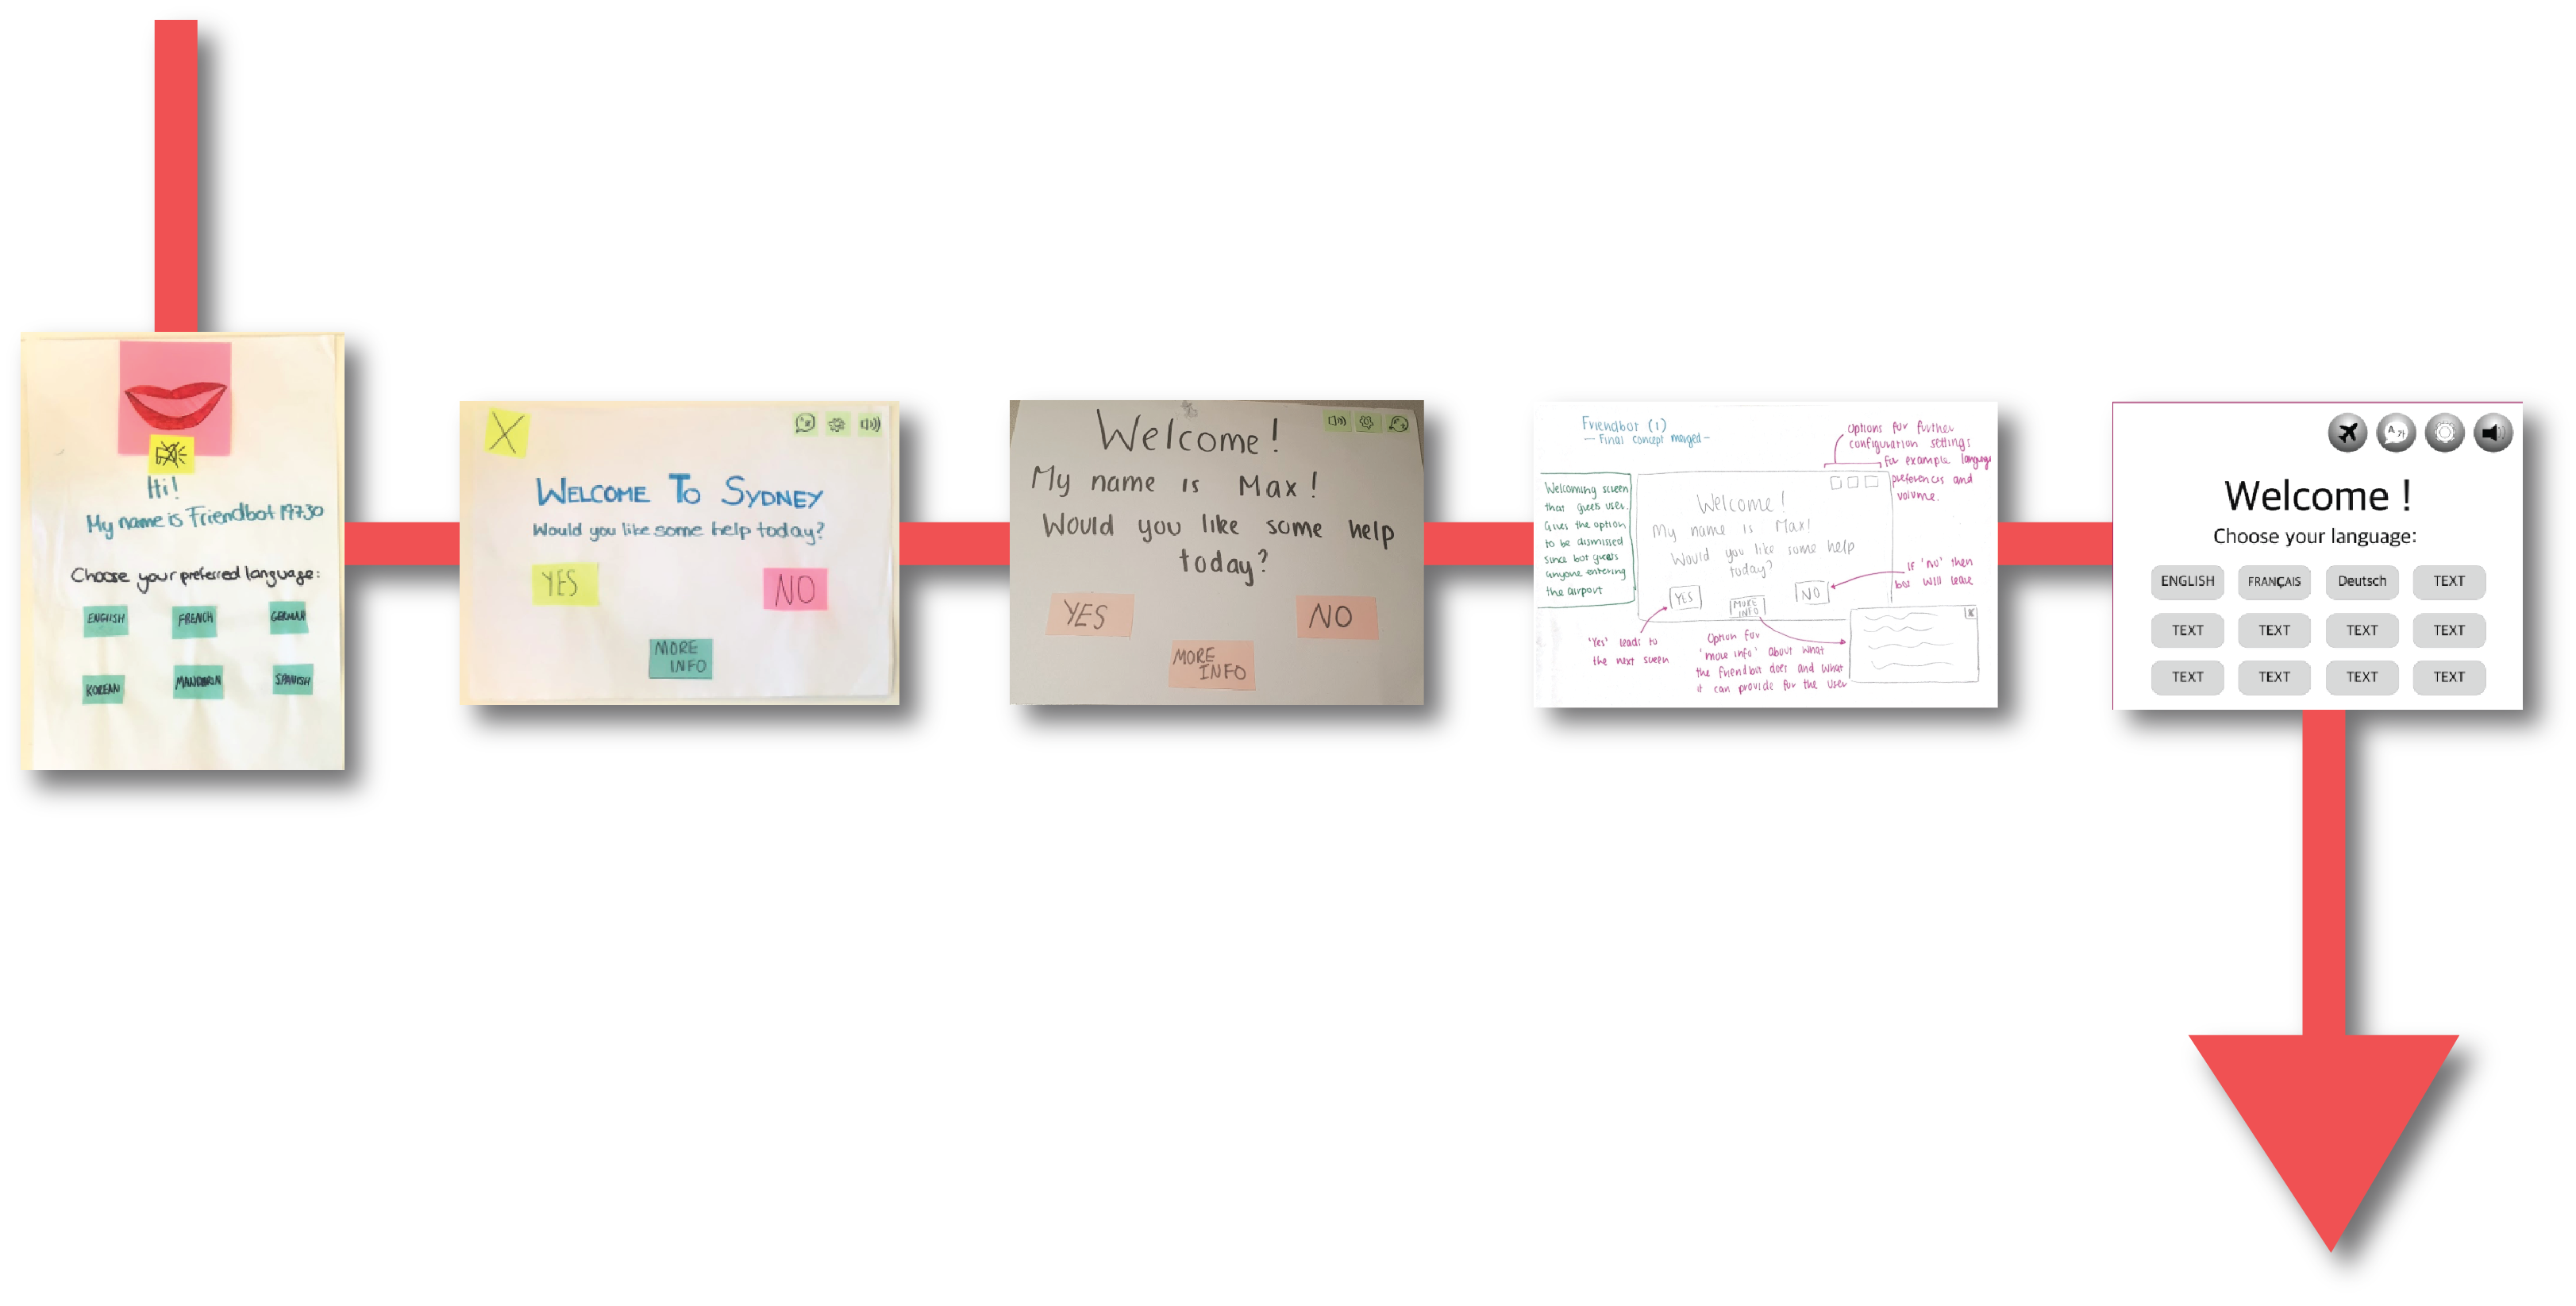 Hi!
My name is Friendbot 19730
Choose your preferred language:
ENGLISH FRENCH GERMAN
KOREAN MANDARIN SPANISH
X
WELCOME TO SYDNEY
Would you like some help today?
YES NO
MORE
INFO
Welcome!
My name is Max!
Would you like some help
today?
YES NO
MORE
INFO
Friendbot (1)
- Final concept merged -
options for further
configuration settings
for example language
preferences and
volume.
Welcoming screen
that greets user.
Gives the option
to be dismissed
since bot greets
anyone entering
the airport
Welcome!
My name is Max!
Would you like some help
today?
YES
MORE
INFO
NO
If 'no' then
bot will leave
'Yes' leads to
the next screen
Option for
'more info' about what
the friendbot does and what
it can provide for the user
X
Welcome !
Choose your language:
ENGLISH FRANÇAIS Deutsch TEXT
TEXT TEXT TEXT TEXT
TEXT TEXT TEXT TEXT